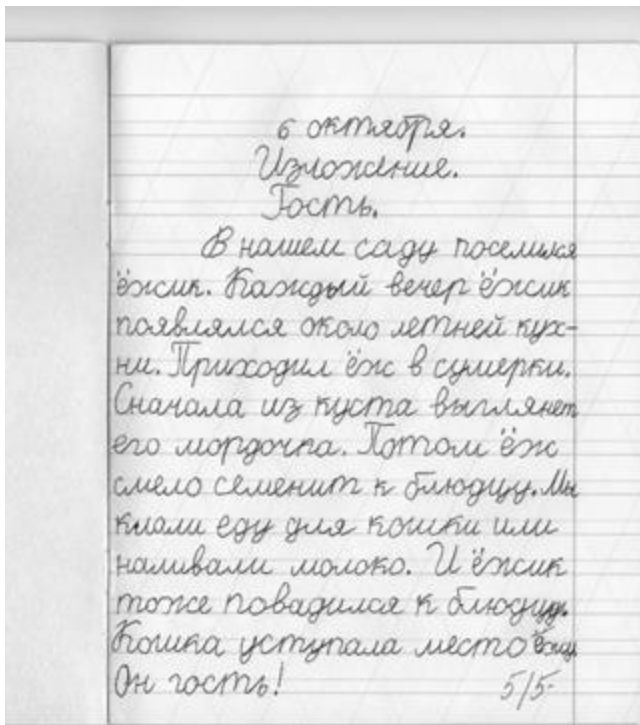 6 октября.
Изложение.
Гость.
В нашем саду поселился
ёжик. Каждый вечер ёжик
появлялся около летней кух-
ни. Приходил ёж в сумерки.
Сначала из куста выглянет
его мордочка. Потом ёж
смело семенит к блюдцу. Мы
клали еду для кошки или
наливали молоко. И ёжик
тоже повадился к блюдцу.
Кошка уступала место ежу.
Он гость!
5/5-